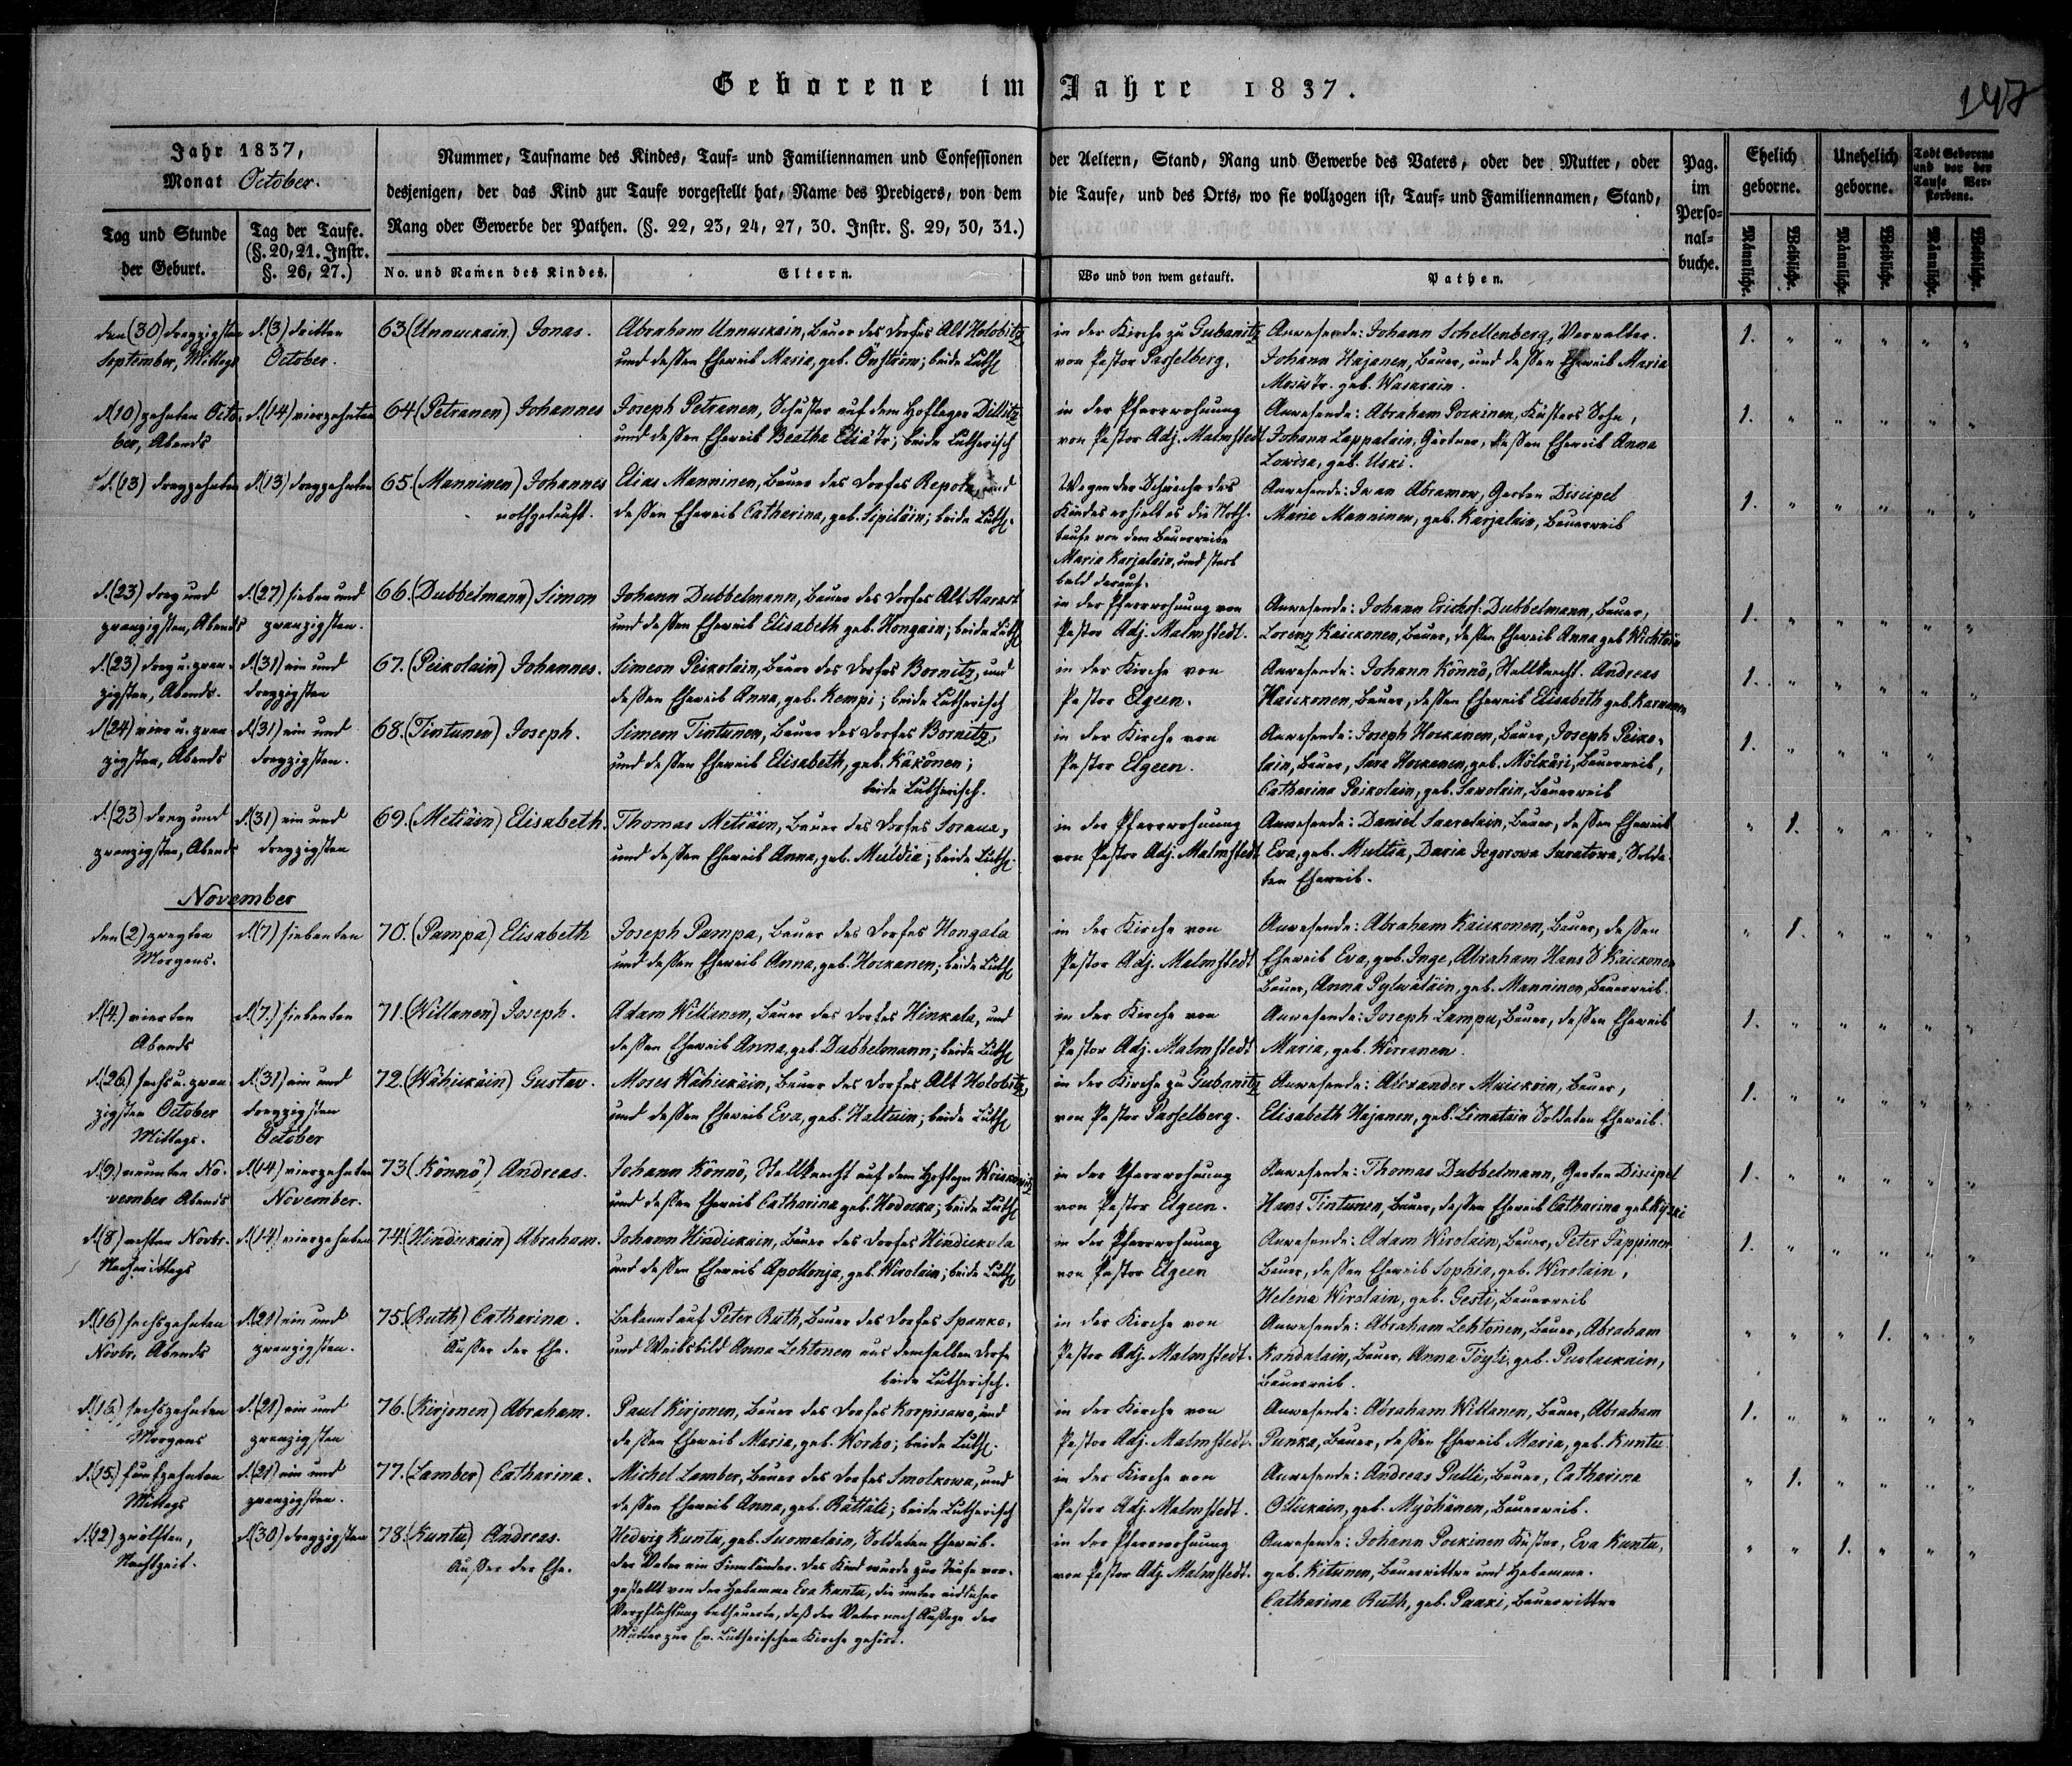 Geborene im Jahre 1837.
147
Jahr 1837,
Monat October.
Tag und Stunde
der Geburt.
Tag der Taufe.
(§. 20, 21. Instr.
§. 26, 27.)
Nummer, Taufname des Kindes, Tauf- und Familiennamen und Confessionen der Aeltern, Stand, Rang und Gewerbe des Vaters, oder der Mutter, oder
desjenigen, der das Kind zur Taufe vorgestellt hat, Name des Predigers, von dem die Taufe, und des Orts, wo sie vollzogen ist, Tauf- und Familiennamen, Stand,
Rang oder Gewerbe der Pathen. (§. 22, 23, 24, 27, 30. Instr. §. 29, 30, 31.)
No. und Namen des Kindes.
Eltern.
Wo und von wem getauft.
Pathen.
Pag.
im
Perso-
nal-
buche.
Ehelich
geborne.
Unehelich
geborne.
Todt Geborene
und vor der
Taufe Ver-
storbene.
Männliche.
Weibliche.
Männliche.
Weibliche.
Männliche.
Weibliche.
den (30) dreyzigsten
September, Mittags
d. (3) dritten
October.
63 (Unnuckain) Jonas.
Abraham Unnuckain, Bauer des Dorfes Alt Holobitz
und dessen Eheweib Maria, geb. Önström; beide Luth.
in der Kirche zu Gubanitz
von Pastor Passelberg.
Anwesende: Johann Schellenberg, Verwalter.
Johann Hajanen, Bauer, und dessen Eheweib Maria
Moisistr. geb. Wasarain.
1. " " " " "
d. (10) zehnten Octo-
ber, Abends
d. (14) vierzehnten
64 (Petranen) Johannes
Joseph Petranen, Schuster auf dem Hoflager Dillitz
und dessen Eheweib Beatha Eliätr; beide Lutherisch
in der Pfarrwohnung
von Pastor Adj. Malmstedt
Anwesende: Abraham Pockinen, Küsters Sohn,
Johann Lappalain, Gärtner, dessen Eheweib Anna
Lowisa, geb. Uski.
1. " " " " "
d. (13) dreyzehnten
d. (13) dreyzehnten
65. (Manninen) Johannes
nothgetauft.
Elias Manninen, Bauer des Dorfes Repola, und
dessen Eheweib Catharina, geb. Sipiläin; beide Luth.
Wegen der Schwäche des
Kindes erhielt es die Noth-
taufe von dem Bauerweibe
Maria Karjalain, und starb
bald darauf.
Anwesende: Iwan Abramow, Garten Discipel
Maria Manninen, geb. Karjalain, Bauerweib
1. " " " " "
d. (23) drey und
zwanzigsten, Abends
d. (27) sieben und
zwanzigsten.
66. (Dubbelmann) Simon
Johann Dubbelmann, Bauer des Dorfes Alt Starest
und dessen Eheweib Elisabeth geb. Hongain; beide Luth
in der Pfarrwohnung von
Pastor Adj. Malmstedt.
Anwesende: Johann Erichs: Dubbelmann, Bauer,
Lorenz Kaickonen, Bauer, dessen Eheweib Anna geb Wichtöin
1. " " " " "
d. (23) drey u. zwan-
zigsten, Abends.
d. (31) ein und
dreyzigsten
67. (Peikolain) Johannes.
Simeon Peikolain, Bauer des Dorfes Bornitz, und
dessen Eheweib Anna, geb. Kempi; beide Lutherisch
in der Kirche von
Pastor Elgeen.
Anwesende: Johann Könnö, Stallknecht. Andreas
Haickonen, Bauer, dessen Eheweib Elisabeth geb. Karwanen
1. " " " " "
d. (24) vier u. zwan
zigsten, Abends
d. (31) ein und
dreyzigsten.
68. (Tintunen) Joseph.
Simeon Tintunen, Bauer des Dorfes Bornitz,
und dessen Eheweib Elisabeth, geb. Käkönen;
beide Lutherisch.
in der Kirche von
Pastor Elgeen.
Anwesende: Joseph Hockanen, Bauer, Joseph Peiko-
lain, Bauer, Sara Hockanen, geb. Mölkäri, Bauerweib,
Catharina Peikolain, geb. Sawolain, Bauerweib
1. " " " " "
d. (23) drey und
zwanzigsten, Abends
d. (31) ein und
dreyzigsten
69. (Metiäin) Elisabeth.
Thomas Metiäin, Bauer des Dorfes Sorana,
und dessen Eheweib Anna, geb. Muldia; beide Luth.
in der Pfarrwohnung
von Pastor Adj. Malmstedt
Anwesende: Daniel Saarelain, Bauer, dessen Eheweib
Eva, geb. Multia, Daria Jegorowa Saratowa, Solda-
ten Eheweib.
" 1. " " " "
November
den (2) zweyten
Morgens.
d. (7) siebenten
70. (Pampa) Elisabeth
Joseph Pampa, Bauer des Dorfes Hongala
und dessen Eheweib Anna, geb. Hockanen; beide Luth
in der Kirche von
Pastor Adj. Malmstedt
Anwesende: Abraham Kaickonen, Bauer, dessen
Eheweib Eva, geb. Inge, Abraham Hans S Kaickonen
Bauer, Anna Pylwäläin, geb. Manninen, Bauerweib.
" 1. " " " "
d. (4) vierten
Abends
d. (7.) siebenten
71. (Willanen) Joseph.
Adam Willanen, Bauer des Dorfes Hinkala, und
dessen Eheweib Anna, geb. Dubbelmann; beide Luth
in der Kirche von
Pastor Adj. Malmstedt
Anwesende: Joseph Lampu, Bauer, dessen Eheweib
Maria, geb. Wirranen.
1. " " " " "
d. (26) sechs u. zwan-
zigsten October
Mittags.
d. (31) ein und
dreyzigsten
October
72. (Wähickäin) Gustav.
Moses Wähickäin, Bauer des Dorfes Alt Holobitz,
und dessen Eheweib Eva, geb. Haltuin; beide Luth
in der Kirche zu Gubanitz
von Pastor Passelberg.
Anwesende: Alexander Muickoin, Bauer,
Elisabeth Hajanen, geb. Limatain Soldaten Eheweib.
1. " " " " "
d. (9) neunten No-
vember Abends
d. (14) vierzehnten
November.
73 (Könnö) Andreas.
Johann Könnö, Stallknecht auf dem Hoflager Wriskowitz
und dessen Eheweib Catharina geb. Hodocka; beide Luth
in der Pfarrwohnung
von Pastor Elgeen.
Anwesende: Thomas Dubbelmann, Garten Discipel
Hans Tintunen, Bauer, dessen Eheweib Catharina geb. Kyski
1. " " " " "
d. (8) achten Novbr.
Nachmittags
d. (14) vierzehnten
74. (Hindickain) Abraham.
Johann Hindickain, Bauer des Dorfes Hindickala
und dessen Eheweib Apollonja, geb. Wirolain; beide Luth
in der Pfarrwohnung
von Pastor Elgeen
Anwesende: Adam Wirolain, Bauer, Peter Jäppinen
Bauer, dessen Eheweib Sophia, geb. Wirolain,
Helena Wirolain, geb. Gesti, Bauerweib
1. " " " " "
d. (16) sechszehnten
Novbr, Abends
d. (21) ein und
zwanzigsten.
75. (Ruth) Catharina.
Ausser der Ehe.
Bekannt auf Peter Ruth, Bauer des Dorfes Spanko,
und Weibsbild Anna Lehtonen aus demselben Dorfe
beide Lutherisch.
in der Kirche von
Pastor Adj. Malmstedt.
Anwesende: Abraham Lehtonen, Bauer, Abraham
Kandalain, Bauer, Anna Töyli, geb. Puolackain,
Bauerweib.
" " " 1. " "
d. (16) sechszehnten
Morgens
d. (21) ein und
zwanzigsten
76. (Kirjonen) Abraham.
Paul Kirjonen, Bauer des Dorfes Korpisawo, und
dessen Eheweib Maria, geb. Korho; beide Luth.
in der Kirche von
Pastor Adj. Malmstedt.
Anwesende: Abraham Willanen, Bauer, Abraham
Punka, Bauer, dessen Eheweib Maria, geb. Kuntu.
1. " " " " "
d. (15) fünfzehnten
Mittags
d. (21) ein und
zwanzigsten.
77. (Lamber) Catharina.
Michel Lamber, Bauer des Dorfes Smolkowa, und
dessen Eheweib Anna, geb. Rättäli; beide Lutherisch
in der Kirche von
Pastor Adj. Malmstedt.
Anwesende: Andreas Pulli, Bauer, Catharina
Ollickain, geb. Myöhänen, Bauerweib.
" 1. " " " "
d. (12) zwölften,
Nachtzeit.
d. (30) dreyzigsten
78. (Kuntu) Andreas.
Ausser der Ehe.
Hedwig Kuntu, geb. Suomalain, Soldaten Eheweib.
Der Vater ein Finnländer. Das Kind wurde zur Taufe vor-
gestellt von der Hebamme Eva Kuntu, die unter eidlicher
Verpflichtung betheuerte, daß der Vater nach Aussage der
Mutter zur Ev. Lutherischen Kirche gehört.
in der Pfarrwohnung
von Pastor Adj. Malmstedt.
Anwesende: Johann Pockinen Küster, Eva Kuntu,
geb. Kitunen, Bauerwittwe und Hebamme.
Catharina Ruth, geb. Paaki, Bauerwittwe
" " 1. " " "